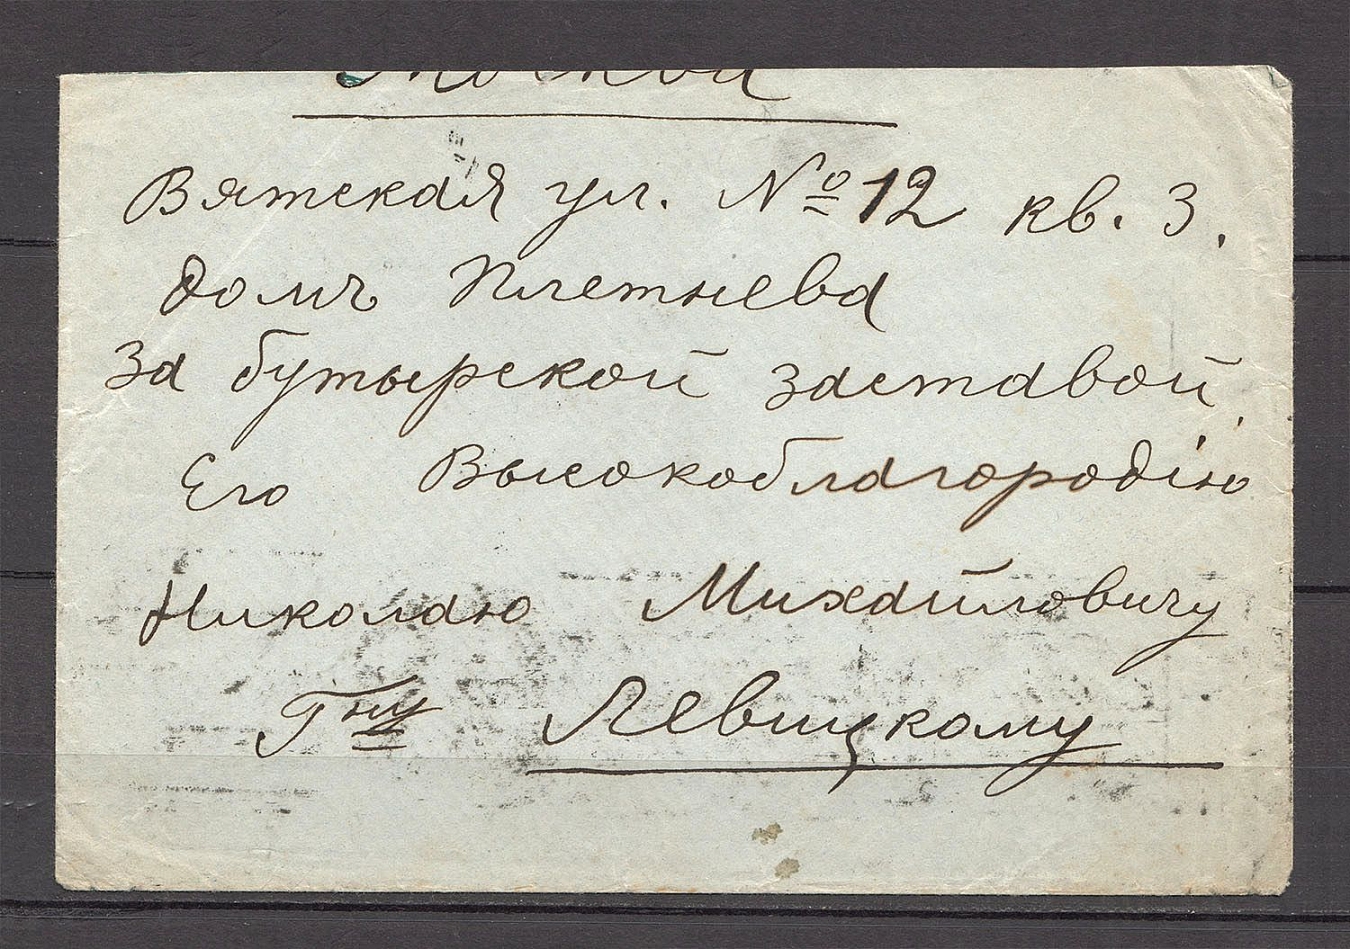 Москва
Вятская ул. № 12 кв. 3.
домъ Плетнева
за бутырской заставой.
Его Высокоблагородію
Николаю Михайловичу
Гну Левицкому